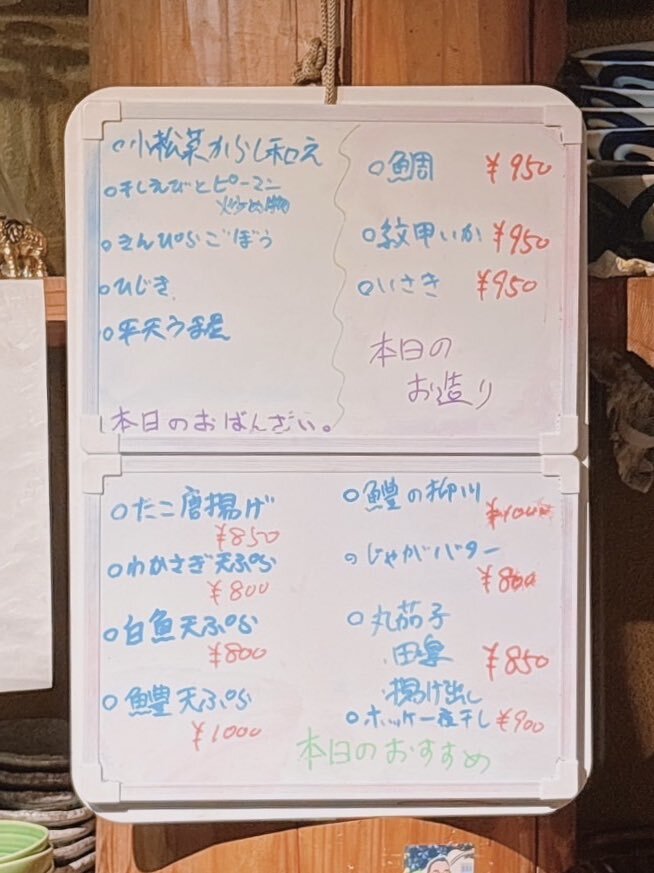 小松菜からし和え
干しえびとピーマン
炒め物
きんぴらごぼう
ひじき
平天うま煮
本日のおばんざい。
鯛 ¥950
紋甲いか ¥950
いさき ¥950
本日の
お造り
たこ唐揚げ
¥850
わかさぎ天ぷら
¥800
白魚天ぷら
¥800
鱧天ぷら
¥1000
鱧の柳川
¥1000
じゃがバター
¥800
丸茄子
田楽
¥850
揚げ出し
ホッケ一夜干し ¥900
本日のおすすめ